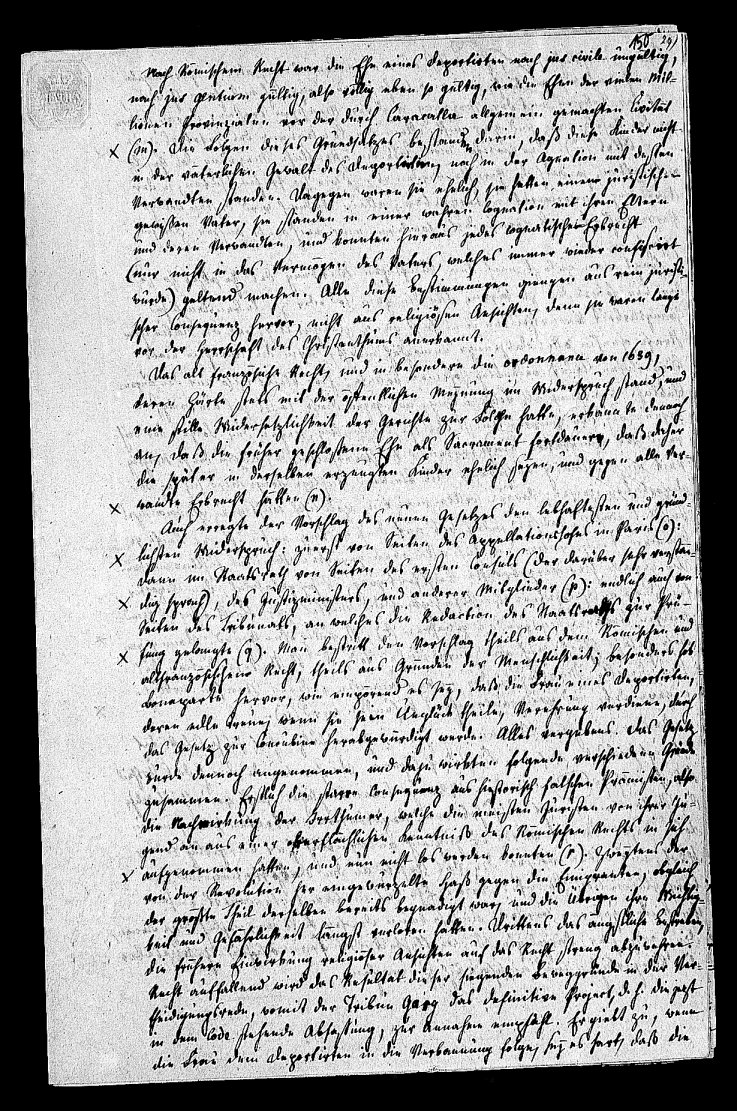 150 291
Nach Römischem Recht war die Ehe eines Deportirten nach jus civile ungültig,
nach jus gentium gültig, also völlig eben so gültig, wie die Ehen der vielen Mil-
lionen Provinzialen vor der durch Caracalla allgemein gemachten Civität
(m). Die Folgen dieses Grundsatzes bestanden darin, daß diese Kinder nicht
in der väterlichen Gewalt des Deportirten, noch in der Agnation mit dessen
Verwandten standen. Dagegen waren sie ehelich, sie hatten einen juristisch
gewissen Vater, sie standen in einer wahren Cognation mit ihren Eltern
und deren Verwandten, und konnten hieraus jedes cognatische Erbrecht
(nur nicht in das Vermögen des Vaters, welches immer wieder confiscirt
wurde) geltend machen. Alle diese Bestimmungen giengen aus rein juristi-
scher Consequenz hervor, nicht aus religiösen Ansichten, denn sie waren lange
vor der Herrschaft des Christenthums anerkannt.
Das alt französische Recht, und insbesondere die ordonnance von 1639,
deren Härte stets mit der öffentlichen Meynung im Widerspruch stand, und
eine stille Widersetzlichkeit der Gerichte zur Folge hatte, erkannte dennoch
an, daß die früher geschlossene Ehe als Sacrament fortdauere, daß daher
die später in derselben erzeugten Kinder ehelich seyen, und gegen alle Ver-
wandte Erbrecht hätten (n).
Auch erregte der Vorschlag des neuen Gesetzes den lebhaftesten und gründ-
lichsten Widerspruch: zuerst von Seiten des Appellationshofes in Paris (o):
dann im Staatsrath von Seiten des ersten Consuls (der darüber sehr verstän-
dig sprach), des Justizministers, und anderer Mitglieder (p): endlich auch von
Seiten des Tribunats, an welches die Redaction des Staatsraths zur Prü-
fung gelangte (q). Man bestritt den Vorschlag theils aus dem Römischen und
altfranzösischen Recht, theils aus Gründen der Menschlichkeit; besonders hob
Bonaparte hervor, wie empörend es sey, daß die Frau eines Deportirten,
deren edle Treue, wenn sie sein Unglück theile, Verehrung verdiene, durch
das Gesetz zur Concubine herabgewürdigt werde. Alles vergebens. Das Gesetz
wurde dennoch angenommen, und dazu wirkten folgende verschiedene Gründe
zusammen. Erstlich die starre Consequenz aus historisch falschen Prämissen, also
die Nachwirkung der Irrthümer, welche die meisten Juristen von ihrer Ju-
gend an aus einer oberflächlichen Kenntniß des Römischen Rechts in sich
aufgenommen hatten, und nun nicht los werden konnten (r). Zweytens der
von der Revolution her eingewurzelte Haß gegen die Emigranten, obgleich
der größte Theil derselben bereits begnadigt war, und die Übrigen ihre Wichtig-
keit und Gefährlichkeit längst verloren hatten. Drittens das ängstliche Bestreben,
die frühere Einwirkung religiöser Ansichten auf das Recht streng abzuwehren.
Recht auffallend wird das Resultat dieser siegenden Beweggründe in der Ver-
theidigungsrede, womit der Tribun Gary das definitive Project, d. h. die jetzt
in dem Code stehende Abfassung, zur Annahme empfahl. Er giebt zu, wenn
die Frau dem Deportirten in die Verbannung folge, sey es hart, daß die